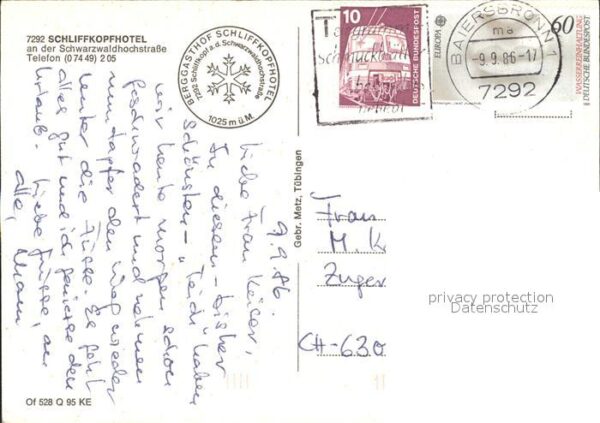 7292 SCHLIFFKOPFHOTEL
an der Schwarzwaldhochstraße
Telefon (0 74 49) 2 05
BERGGASTHOF SCHLIFFKOPFHOTEL
7292 Schliffkopf a.d. Schwarzwaldhochstraße
1025 m ü.M.
10
DEUTSCHE BUNDESPOST
EUROPA
60
WASSERREINHALTUNG
DEUTSCHE BUNDESPOST
BAIERSBRONN 1
ma
-9.9.86-17
7292
9.9.86.
Liebe Frau Keiser,
In diesem – bisher
schönsten – "Teich" haben
wir heute morgen schon
und nehmen
nun tapfer den Weg wieder
unter die Füsse. Es geht
alles gut und ich geniesse den
Urlaub. Liebe Grüsse, an
alle,
Gebr. Metz, Tübingen
Frau
M. K
Zuger
CH-630
privacy protection
Datenschutz
Of 528 Q 95 KE